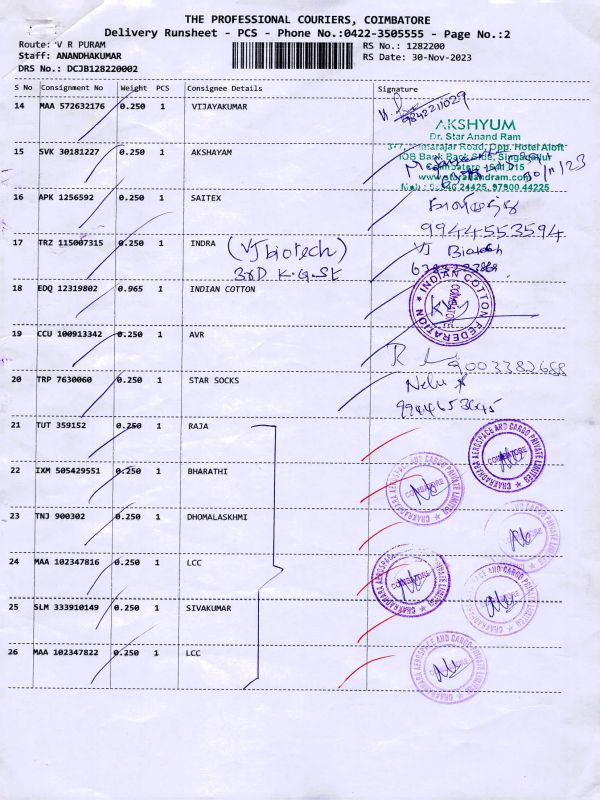 THE PROFESSIONAL COURIERS, COIMBATORE
Delivery Runsheet - PCS - Phone No.:0422-3505555 - Page No.:2
Route: V R PURAM
RS No.: 1282200
Staff: ANANDHAKUMAR
RS Date: 30-Nov-2023
DRS No.: DCJB128220002
S No Consignment No Weight PCS Consignee Details Signature
14 MAA 572632176 0.250 1 VIJAYAKUMAR
9842211029
AKSHYUM
Dr. Star Anand Ram
Opp. Hotel Aloft
IOB Bank Back Side, Singanallur
Coimbatore - 641 015
www.staranandram.com
24425, 97900 44225
15 SVK 30181227 0.250 1 AKSHAYAM
30/11/23
16 APK 1256592 0.250 1 SAITEX
9944553594
17 TRZ 115007315 0.250 1 INDRA (VJ biotech)
3rD K.G.St
VJ Biotech
18 EDQ 12319802 0.965 1 INDIAN COTTON
INDIAN COTTON FEDERATION
COIMBATORE
19 CCU 100913342 0.250 1 AVR
9003382688
20 TRP 7630060 0.250 1 STAR SOCKS
21 TUT 359152 0.250 1 RAJA
CHAKRADHARA AEROSPACE AND CARGO PRIVATE LIMITED
COIMBATORE
22 IXM 505429551 0.250 1 BHARATHI
CHAKRADHARA AEROSPACE AND CARGO PRIVATE LIMITED
COIMBATORE
23 TNJ 900302 0.250 1 DHOMALASKHMI
24 MAA 102347816 0.250 1 LCC
CHAKRADHARA AEROSPACE AND CARGO PRIVATE LIMITED
COIMBATORE
25 SLM 333910149 0.250 1 SIVAKUMAR
26 MAA 102347822 0.250 1 LCC